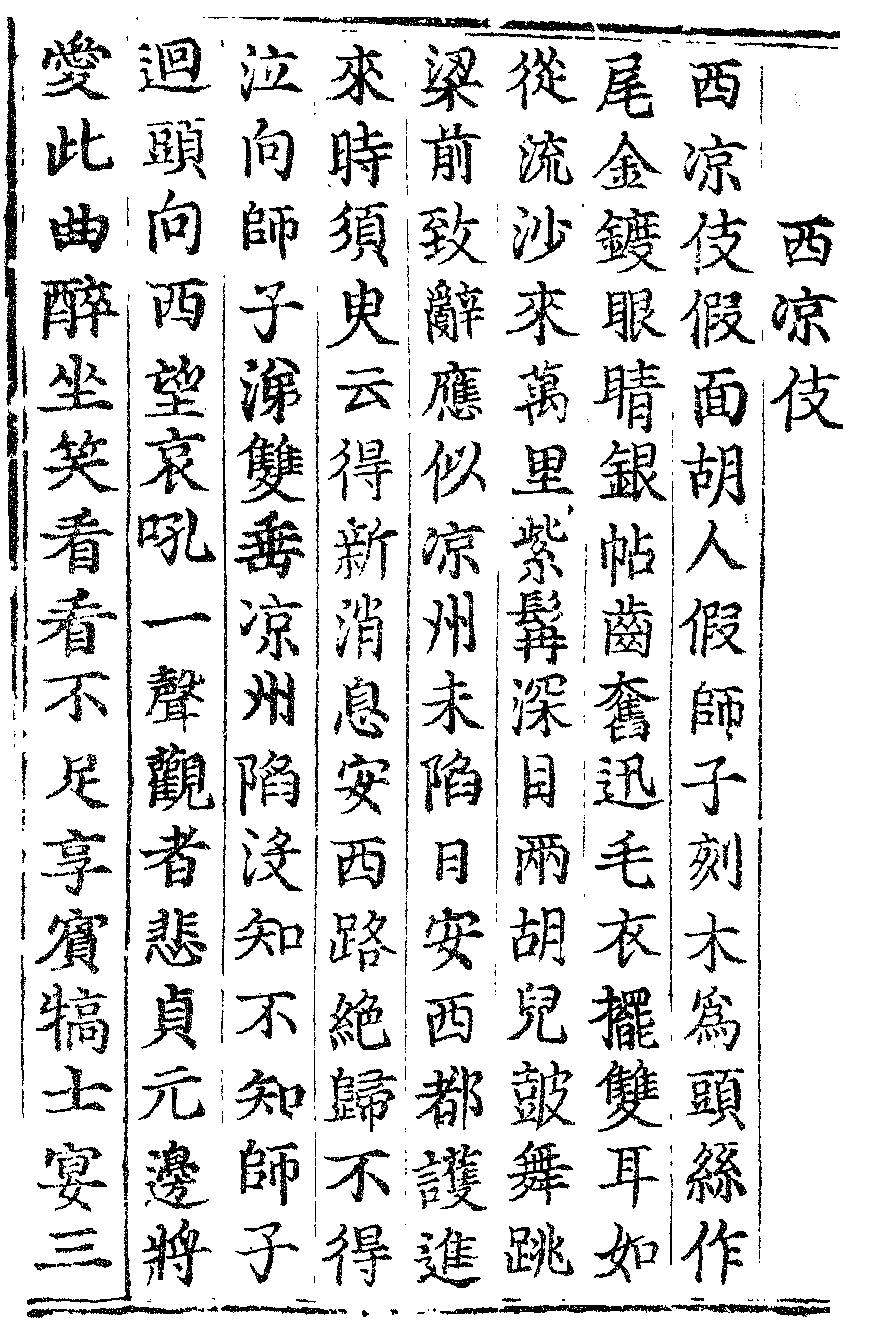 西凉伎
西凉伎假面胡人假師子刻木爲頭絲作
尾金鍍眼睛銀帖齒奮迅毛衣擺雙耳如
從流沙來萬里紫髯深目兩胡兒皷舞跳
梁前致辭應似凉州未陷日安西都護進
來時須臾云得新消息安西路絶歸不得
泣向師子涕雙垂凉州陷没知不知師子
迴頭向西望哀吼一聲觀者悲貞元邊將
愛此曲醉坐笑看看不足享賓犒士宴三